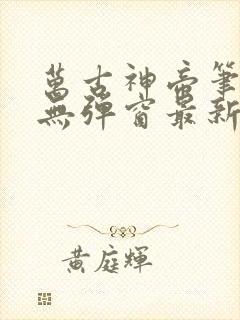 萬古神帝筆
無彈窗最新
黃庭輝